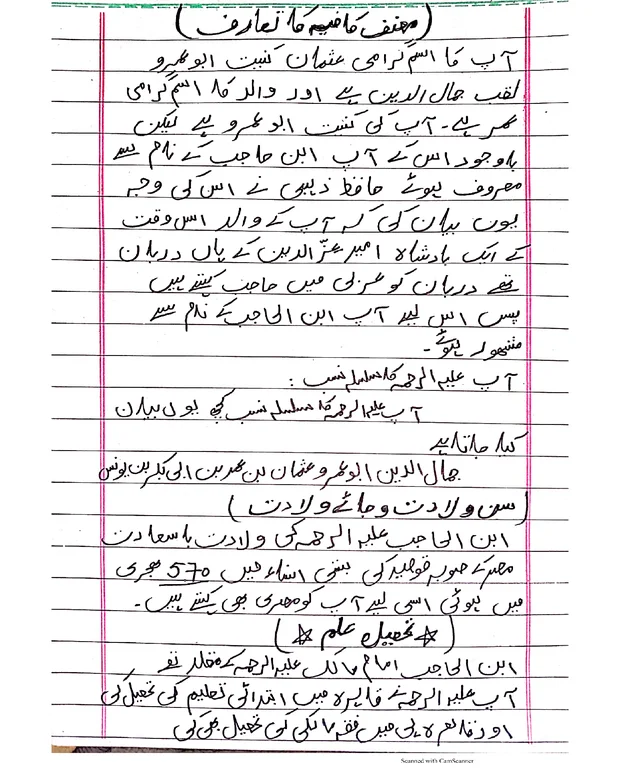 (مصنف کافیہ کا تعارف)
آپ کا اسم گرامی عثمان کنیت ابو عمرو
لقب جمال الدین ہے اور والد کا اسم گرامی
عمر ہے۔ آپ کی کنیت ابو عمرو ہے لیکن
باوجود اس کے آپ ابن حاجب کے نام سے
معروف ہوئے حافظ ذہبی نے اس کی وجہ
یوں بیان کی کہ آپ کے والد اس وقت
کے ایک بادشاہ امیر عزّ الدین کے ہاں دربان
تھے دربان کو عربی میں حاجب کہتے ہیں
پس اس لیے آپ ابن الحاجب کے نام سے
مشہور ہوئے۔
آپ علیہ الرحمہ کا سلسلہ نسب:
آپ علیہ الرحمہ کا سلسلہ نسب کچھ یوں بیان
کیا جاتا ہے
جمال الدین ابو عمرو عثمان بن عمر بن ابی بکر بن یونس
(سن ولادت و جائے ولادت)
ابن الحاجب علیہ الرحمہ کی ولادت باسعادت
مصر کے صوبہ قوصیہ کی بستی اسناء میں 570 ہجری
میں ہوئی اسی لیے آپ کو مصری بھی کہتے ہیں۔
(☆ تحصیل علم ☆)
ابن الحاجب امام مالک علیہ الرحمہ کے مقلد تھے
آپ علیہ الرحمہ نے قاہرہ میں ابتدائی تعلیم کی تحصیل کی
اور قاہرہ ہی میں فقہ مالکی کی تحصیل بھی کی
Scanned with CamScanner